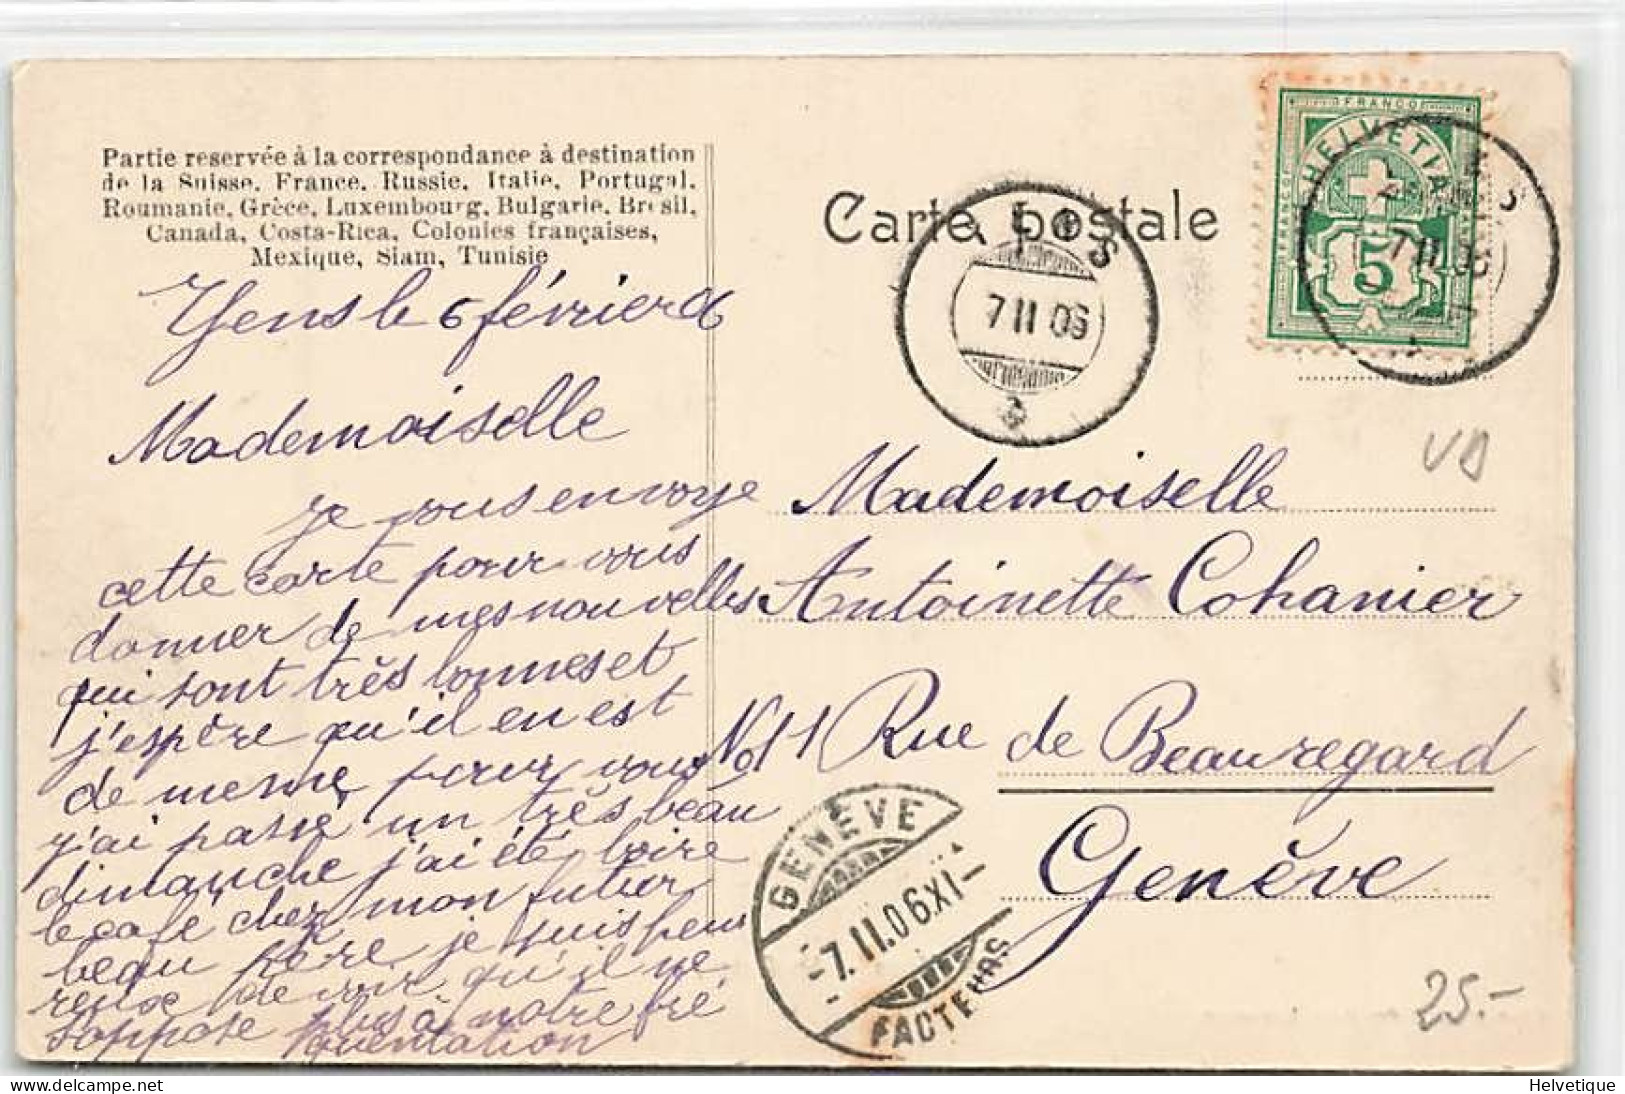 Partie reservée à la correspondance à destination
de la Suisse, France, Russie, Italie, Portugal,
Roumanie, Grèce, Luxembourg, Bulgarie, Bresil,
Canada, Costa-Rica, Colonies françaises,
Mexique, Siam, Tunisie
Yens le 6 février 06
Mademoiselle
je vous envoye
cette carte pour vous
donner de mes nouvelles
qui sont très bonnes et
j'espère qu'il en est
de meme pour vous
j'ai passé un très beau
dimanche j'ai été boire
le café chez mon futur
beau père je suis heu
reuse de voir qu'il ne
soppose plus à notre fré
quentation
Carte postale
7 II 06
FRANCO
HELVETIA
5
7 II 06
VD
Mademoiselle
Antoinette Cohanier
No 11 Rue de Beauregard
Genève
GENÈVE
7.II.06 XI
FACTEURS
25.-
Helvetique